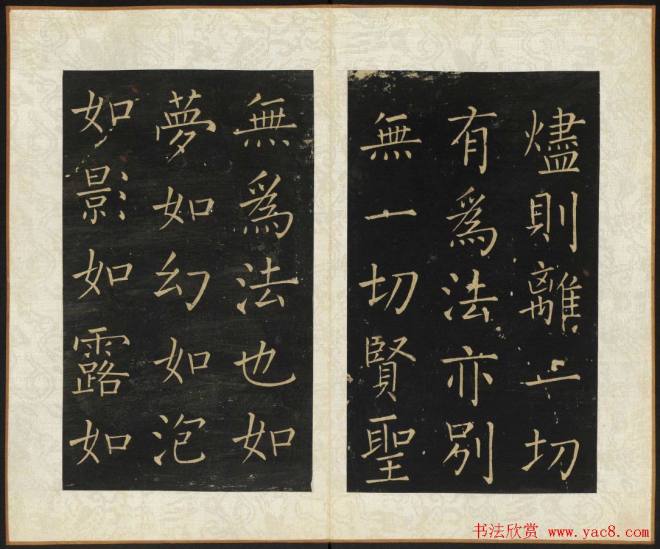 燼則離一切
有為法亦別
無一切賢聖
無為法也如
夢如幻如泡
如影如露如
书法欣赏 www.yac8.com